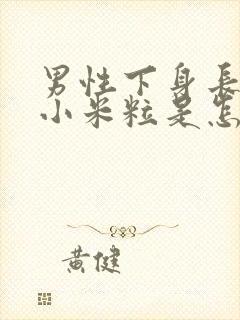 男性下身長
小米粒是怎
黄健